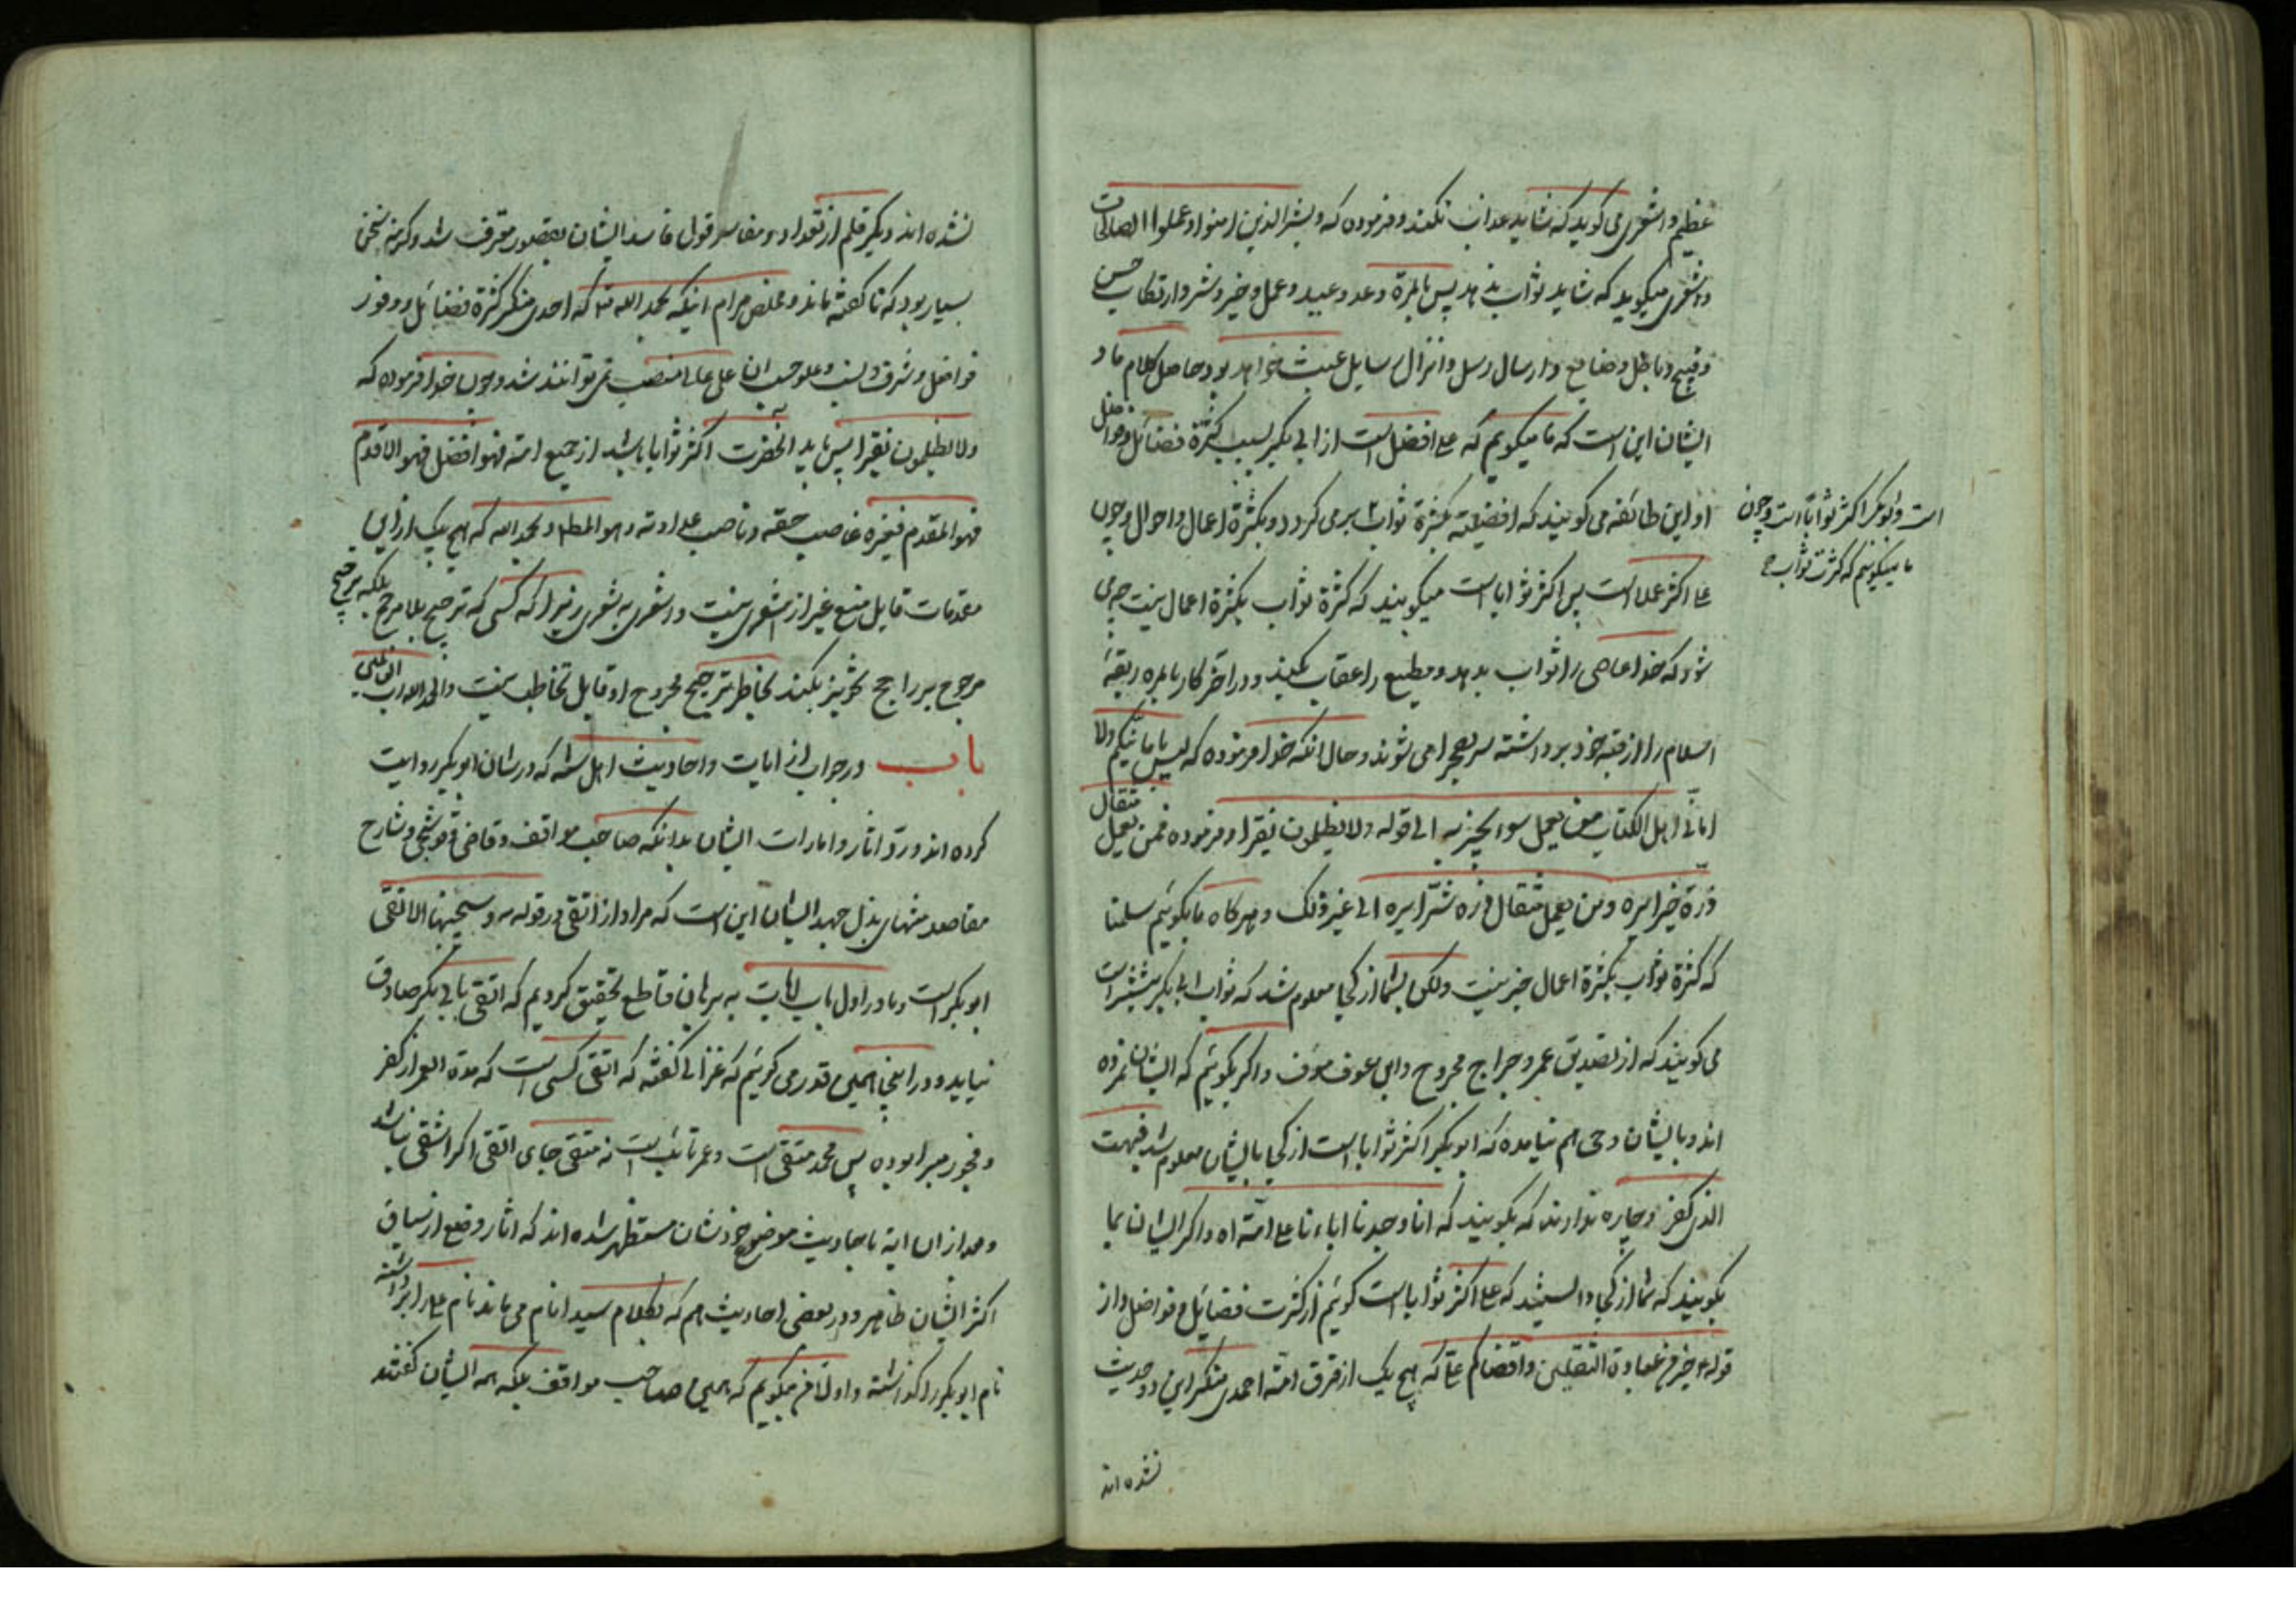 عظیم و اشعری می کوید که شاید عذاب نکند و فرموده که و بشر الذین امنوا و عملوا الصالحات
و اشعری میکوید که شاید ثواب ندهد پس بالمرة وعد و وعید و عمل و خیر و شر و ارتکاب حسن
و قبیح و باطل و ضایع و ارسال رسل و انزال رسایل عبث خواهد بود حاصل کلام ما و
ایشان این است که ما میکویم که علی افضل است از ابی بکر بسبب کثرة فضائل و فواضل
او این طائفه می کویند که افضلیته بکثرة ثواب بر می کردد و بکثرة اعمال و احوال و چون
است و ابوبکر اکثر ثوابا است و چون
ما میکوییم که کثرت ثواب
علی اکثر عملا است پس اکثر ثوابا است میکویند که کثرة ثواب بکثرة اعمال نیست چه می
شود که خدا عاصی را ثواب بدهد و مطیع را عقاب بکند و در اخر کار بالمره ربقهٔ
اسلام را از رقبه خود برداشته سر بصحرا می شوند و حال انکه خدا فرموده که لیس بامانیکم ولا
امانی اهل الکتاب من یعمل سوء یجز به الی قوله ولا یظلمون نقیرا و فرموده فمن یعمل مثقال
ذرة خیرا یره و من یعمل مثقال ذره شرا یره الی غیر ذلک و هرکاه ما بکوئیم سلمنا
که کثرة ثواب بکثرة اعمال خیر نیست ولکن بشما از کجا معلوم شد که ثواب ابی بکر بیشتر است
می کویند که از تصدیق عمر و جراح مجروح و ابن عوف مؤف و اکر بکوئیم که ایشان مرده
اند و بایشان وحی هم نیامده که ابوبکر اکثر ثوابا است از کجا بایشان معلوم شد فبهت
الذی کفر و چاره ندارند که بکویند که انا وجدنا اباءنا علی امته اه و اکر ایشان بما
بکویند که شما از کجا دانستید که علی اکثر ثوابا است کوئیم از کثرت فضائل و فواضل و از
قوله خیر من عبادة الثقلین و اقضاکم علی که هیچ یک از فرق امته احمدی منکر این دو حدیث
نشده اند
نشده اند دیکر قلم از تعداد و مفاسد قول فاسد ایشان بقصور معترف شد و کرنه سخن
بسیار بود که ناکفته ماند و ملخص مرام اینکه بحمد الله که احدی منکر کثرة فضائل و وفور
فواضل و شرف نسب و علو حسب ان علی عالی منصب نمی توانند شد و چون خدا فرموده که
ولا یظلمون نقیرا پس باید انحضرت اکثر ثوابا باشد از جمیع امته فهو افضل فهو الاقدم
فهو المقدم فغیره غاصب حقه و ناصب عداوته و هو المط و بحمد الله که هیچ یک از این
مقدمات قابل منع غیر از اشعری نیست و اشعری بی شعوری زیرا که کسی که ترجیح بلا مرجح بلکه ترجیح
مرجوح بر راجح تجویز بکند بخاطر ترجیح مجروح او قابل تخاطب نیست والحمد لله رب العالمین
باب در جواب از ایات و احادیث اهل سنه که در شان ابوبکر روایت
کرده اند و رد اثار و امارات ایشان بدانکه صاحب مواقف و قاضی قوشجی و شارح
مقاصد منتهای بذل جهد ایشان این است که مراد از اتقی در قوله و سیجنبها الاتقی
ابوبکر است و ما در اول باب ایات به برهان قاطع تحقیق کردیم که اتقی بابی بکر صادق
نیاید و در اینجا همین قدر می کوئیم که غزالی کفته که اتقی کسی است که مدة العمر از کفر
و فجور مبرا بوده پس محمد متقی است و عمر تائب است نه متقی جای اتقی اکر اشقی نباشد
و بعد از ان ایة باحادیث موضوع خودشان مستظهر شده اند که اثار وضع از سیاق
اکثر ایشان ظاهر و در بعضی احادیث هم که بکلام سید انام می ماند نام علی را برداشته
نام ابوبکر را کذاشته و اولا من میکویم که همین صاحب مواقف بلکه همه ایشان کفتند